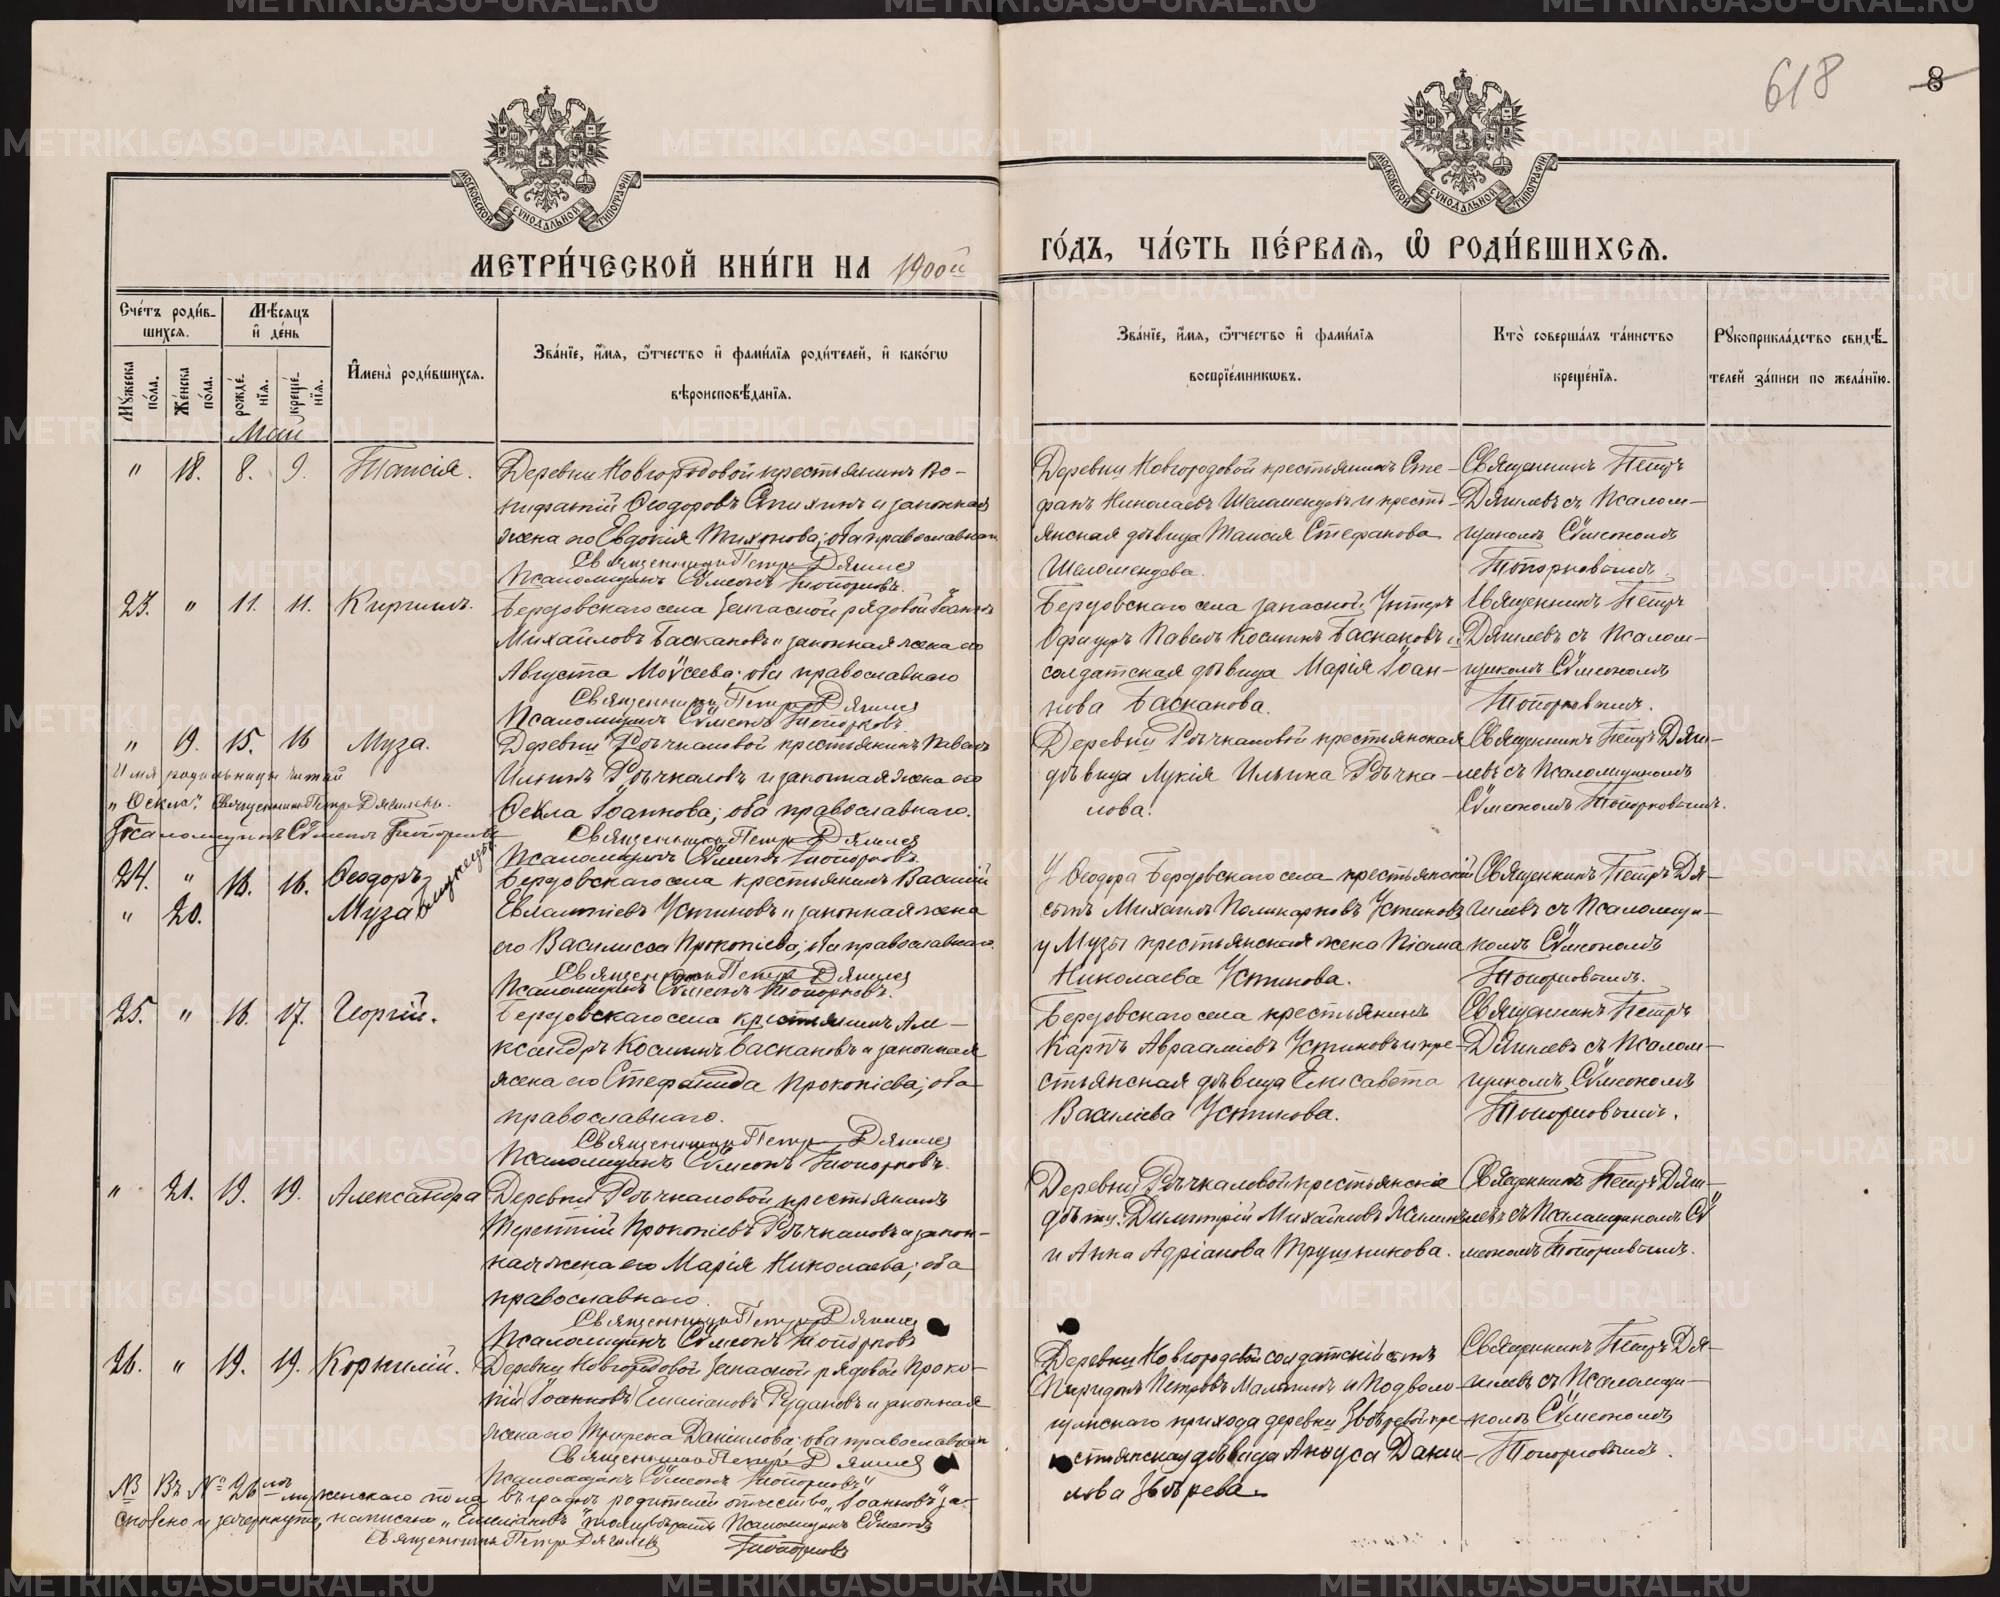 618
8
МОСКОВСКОЙ СѴНОДАЛЬНОЙ ТИПОГРАФІИ
МОСКОВСКОЙ СѴНОДАЛЬНОЙ ТИПОГРАФІИ
МЕТРИ́ЧЕСКОЙ КНИ́ГИ НА 1900й
ГО́ДЪ, ЧА́СТЬ ПЕ́РВАѦ, Ѡ РОДИ́ВШИХСѦ.
Сче́тъ роди́в-
шихся.
Мѣ́сяцъ
и де́нь
Мꙋ́жеска по́ла.
Же́нска по́ла.
рожде́-
нїя.
креще́-
нїя.
Имена̀ роди́вшихся.
Зва́нїе, и́мя, ѻ҆́тчество и фами́лїя роди́телей, и како́гѡ
вѣроисповѣ́данїя.
Зва́нїе, и́мя, ѻ҆́тчество и фами́лїя
воспрїе́мникѡвъ.
Кто̀ соверша́лъ та́инство
креще́нїя.
Рꙋкоприкла́дство свидѣ́-
телей за́писи по жела́нїю.
Май
" 18. 8. 9. Таисія.
Деревни Новгородовой крестьянинъ Во-
нифатій Ѳеодоровъ Спихинъ и законная
жена его Евдокія Тихонова; оба православнаго
Священникъ Петръ Дягилевъ
Псаломщикъ Сѵмеонъ Топорковъ.
Деревни Новгородовой крестьянинъ Сте-
фанъ Николаевъ Шеломенцевъ и кресть-
янская дѣвица Таисія Стефанова
Шеломенцева.
Священникъ Петръ
Дягилевъ съ Псалом-
щикомъ Сѵмеономъ
Топорковымъ.
23. " 11. 11. Кириллъ.
Бердовскаго села запасной рядовой Іоаннъ
Михайловъ Баскановъ и законная жена его
Августа Моѵсеева; оба православнаго
Священникъ Петръ Дягилевъ
Псаломщикъ Сѵмеонъ Топорковъ.
Бердовскаго села запасной Унтеръ
Офицеръ Павелъ Косминъ Баскановъ и
солдатская дѣвица Марія Іоан-
нова Басканова.
Священникъ Петръ
Дягилевъ съ Псалом-
щикомъ Сѵмеономъ
Топорковымъ.
" 19. 15. 16 Муза.
Имя родильницы читай
"Ѳекла". Священникъ Петръ Дягилевъ.
Псаломщикъ Сѵмеонъ Топорковъ
Деревни Рѣчкаловой крестьянинъ Павелъ
Ильинъ Рѣчкаловъ и законная жена его
Ѳекла Іоаннова; оба православнаго.
Священникъ Петръ Дягилевъ
Псаломщикъ Сѵмеонъ Топорковъ.
Деревни Рѣчкаловой крестьянская
дѣвица Лукія Ильина Рѣчка-
лова.
Священникъ Петръ Дяги-
левъ съ Псаломщикомъ
Сѵмеономъ Топорковымъ.
24. " 16. 16. Ѳеодоръ
" 20. Муза близнецы
Бердовскаго села крестьянинъ Василій
Евлампіевъ Устиновъ и законная жена
его Василисса Прокопіева; оба православнаго.
Священникъ Петръ Дягилевъ
Псаломщикъ Сѵмеонъ Топорковъ.
У Ѳеодора Бердовскаго села крестьянскій
сынъ Михаилъ Поликарповъ Устиновъ
у Музы крестьянская жена Піама
Николаева Устинова.
Священникъ Петръ Дя-
гилевъ съ Псаломщи-
комъ Сѵмеономъ
Топорковымъ.
25. " 16. 17. Георгій.
Бердовскаго села крестьянинъ Але-
ксандръ Косминъ Баскановъ и законная
жена его Стефанида Прокопіева; оба
православнаго.
Священникъ Петръ Дягилевъ
Псаломщикъ Сѵмеонъ Топорковъ.
Бердовскаго села крестьянинъ
Карпъ Авраамiевъ Устиновъ и кре-
стьянская дѣвица Елисавета
Василіева Устинова.
Священникъ Петръ
Дягилевъ съ Псалом-
щикомъ Сѵмеономъ
Топорковымъ.
" 21. 19. 19. Александра
Деревни Рѣчкаловой крестьянинъ
Терентій Прокопіевъ Рѣчкаловъ и закон-
ная жена его Марія Николаева; оба
православнаго.
Священникъ Петръ Дягилевъ
Псаломщикъ Сѵмеонъ Топорковъ
Деревни Рѣчкаловой крестьянскіе
дѣти: Димитрій Михайловъ
и Анна Адріанова Трушникова.
Священникъ Петръ Дяги-
левъ съ Псаломщикомъ Сѵ
меономъ Топорковымъ.
26. " 19. 19. Корнилій.
Деревни Новгородовой запасной рядовой Проко-
пій Іоанновъ Емиліановъ Рудаковъ и законная
жена его Трифена Даніилова; оба православнаго
Священникъ Петръ Дягилевъ
Псаломщикъ Сѵмеонъ Топорковъ
Деревни Новгородовой солдатскій сынъ
Спиридонъ Петровъ Малыгинъ и Подволо-
шинскаго прихода деревни Звѣревой кре-
стьянская дѣвица Анѳуса Дании-
лова Звѣрева.
Священникъ Петръ Дя-
гилевъ съ Псаломщи-
комъ Сѵмеономъ
Топорковымъ.
NB Въ № 26мъ мужескаго пола въ графѣ родителей отчество "Іоанновъ" за-
скоблено и зачеркнуто, написано "Емиліановъ" Псаломщикъ Сѵмеонъ
Священникъ Петръ Дягилевъ Топорковъ
METRIKI.GASO-URAL.RU